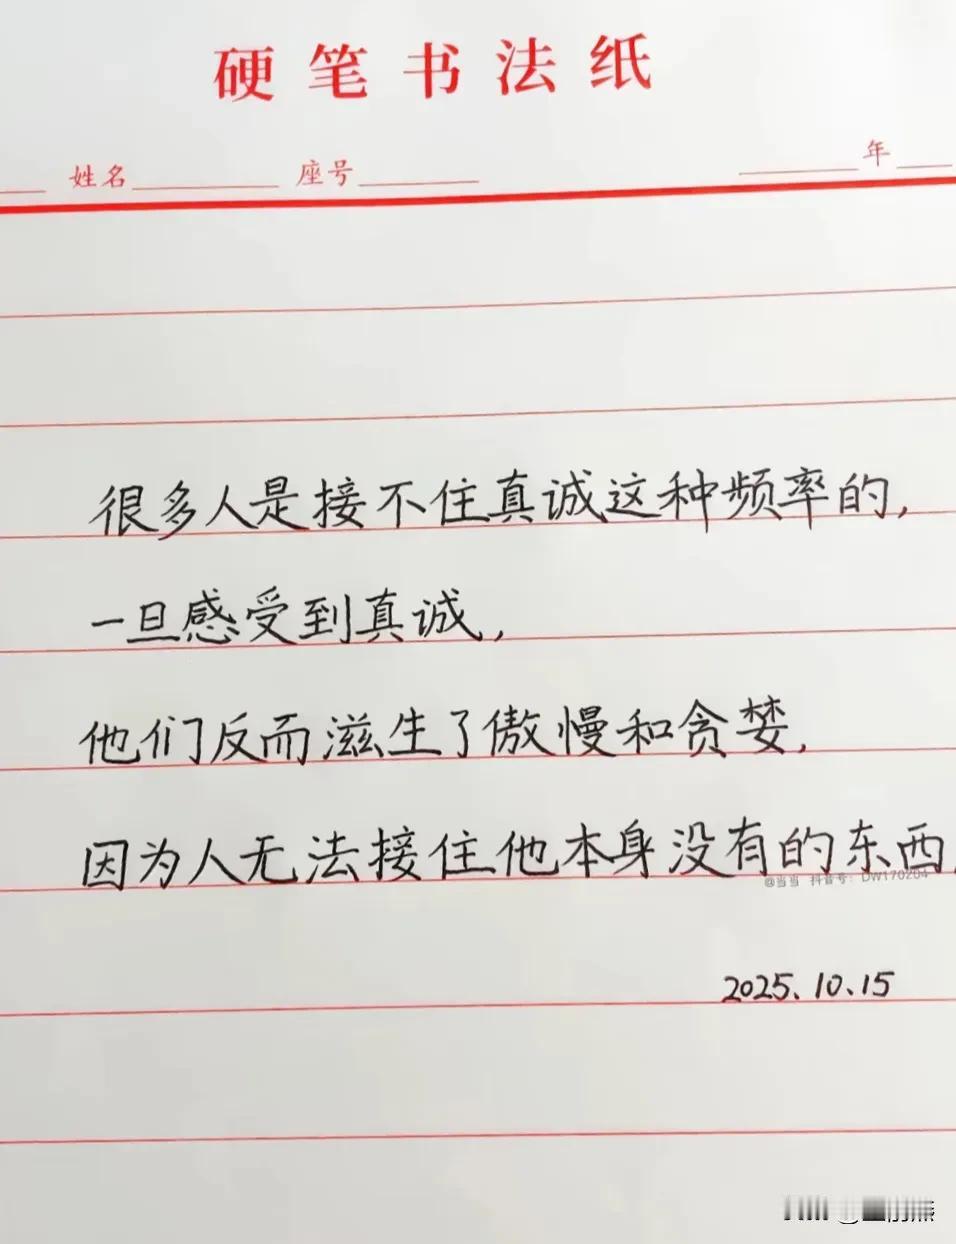 硬笔书法纸
姓名 座号 年
很多人是接不住真诚这种频率的,
一旦感受到真诚,
他们反而滋生了傲慢和贪婪,
因为人无法接住他本身没有的东西.
@当当 抖音号: DW170204
2025.10.15